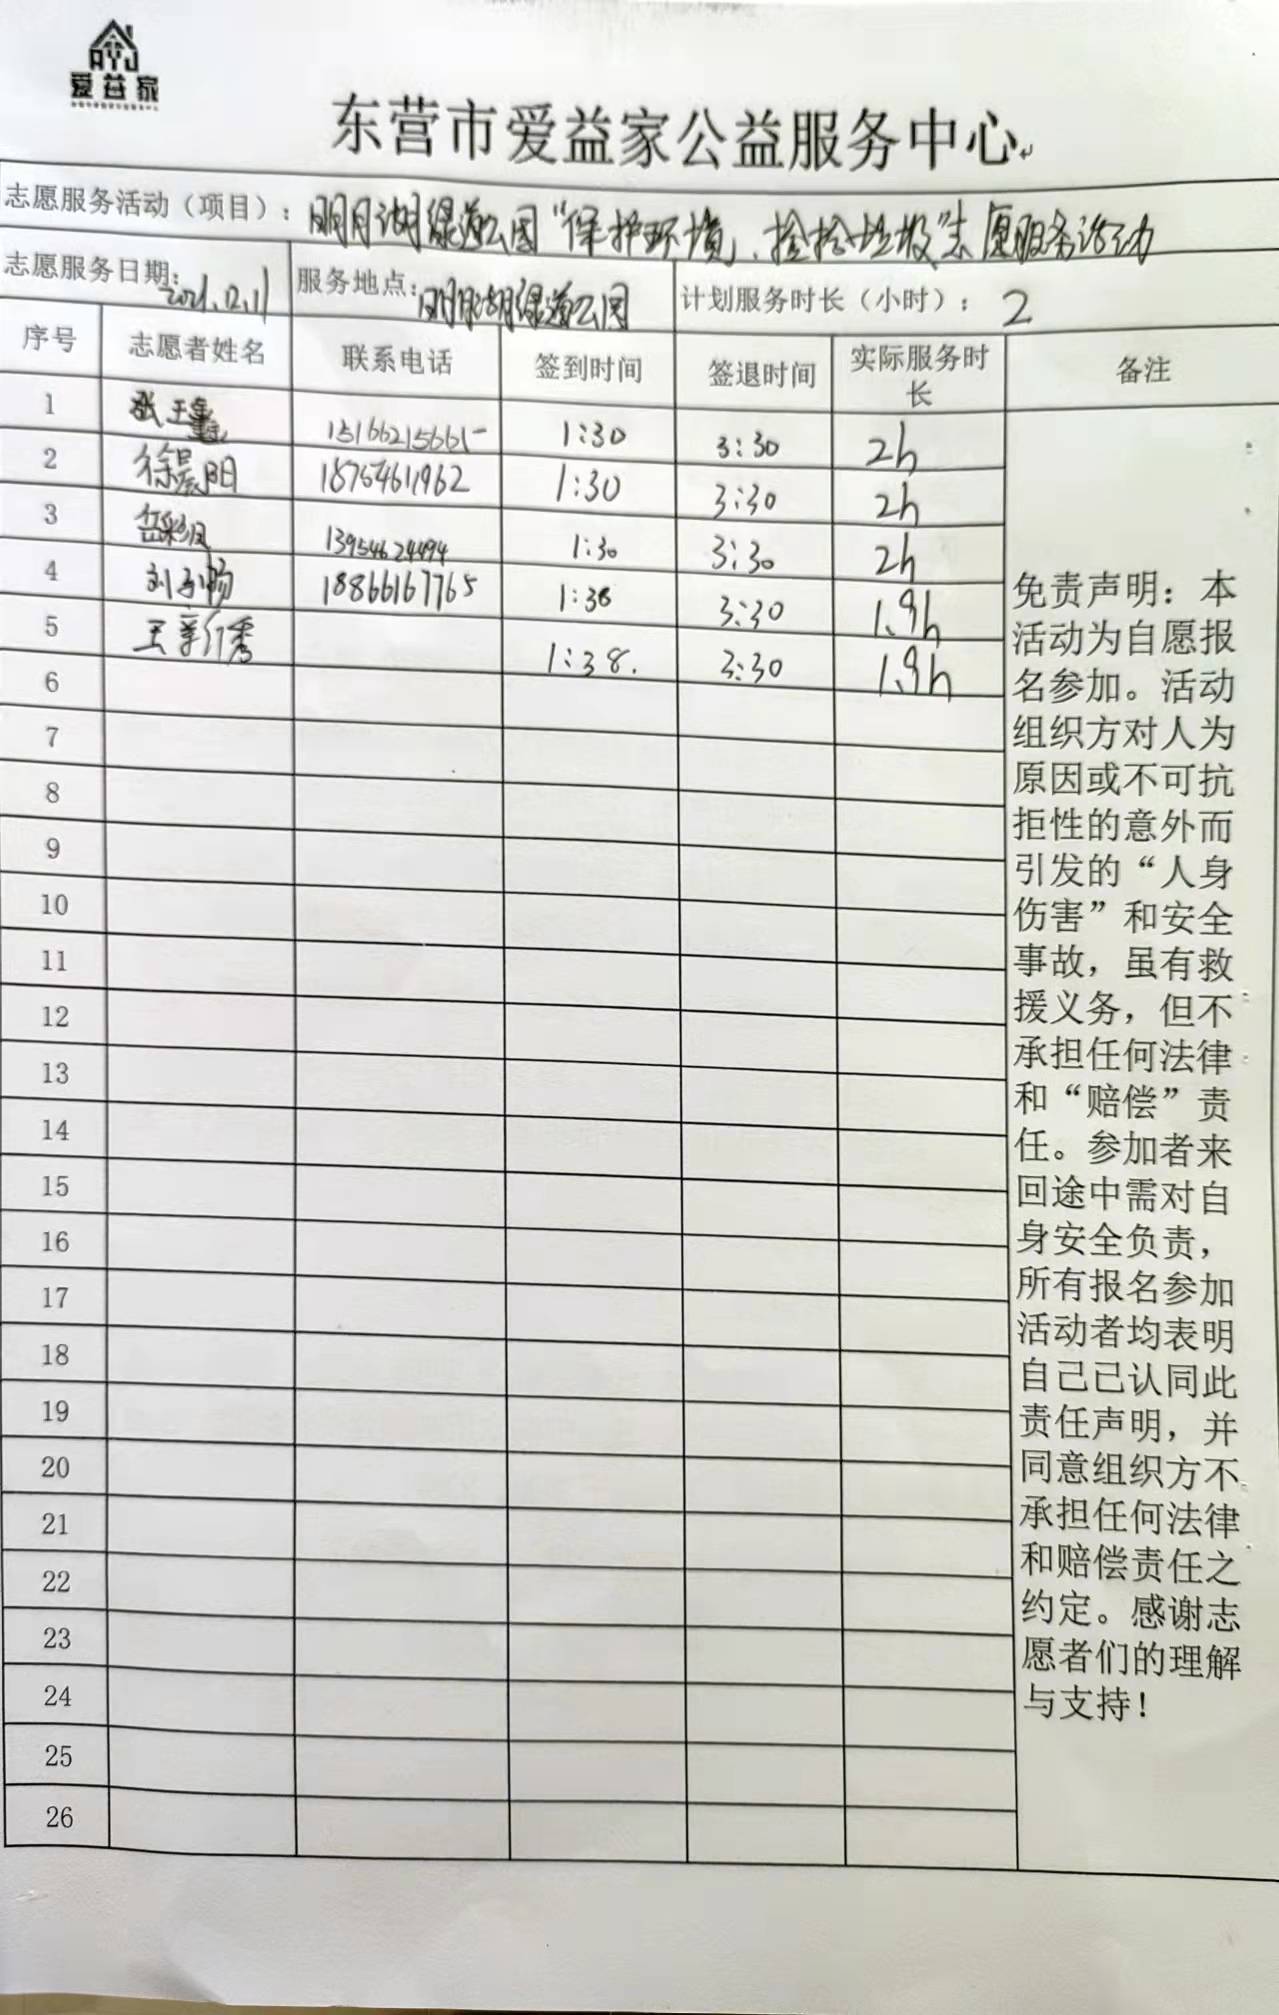 AYJ
爱益家
东营市爱益家公益服务中心
志愿服务活动（项目）：明月湖绿道公园“保护环境、捡拾垃圾”志愿服务活动
志愿服务日期：2021.12.11 服务地点：明月湖绿道公园 计划服务时长（小时）：2
序号 志愿者姓名 联系电话 签到时间 签退时间 实际服务时长 备注
1 张玉 1:30 3:30 2h
2 徐晨阳 18754611962 1:30 3:30 2h
3 岳彩凤 13954624494 1:30 3:30 2h
4 刘子畅 18866167765 1:38 3:30 1.9h
5 王新秀 1:38. 3:30 1.9h
6
7
8
9
10
11
12
13
14
15
16
17
18
19
20
21
22
23
24
25
26
免责声明：本
活动为自愿报
名参加。活动
组织方对人为
原因或不可抗
拒性的意外而
引发的“人身
伤害”和安全
事故，虽有救
援义务，但不
承担任何法律
和“赔偿”责
任。参加者来
回途中需对自
身安全负责，
所有报名参加
活动者均表明
自己已认同此
责任声明，并
同意组织方不
承担任何法律
和赔偿责任之
约定。感谢志
愿者们的理解
与支持！